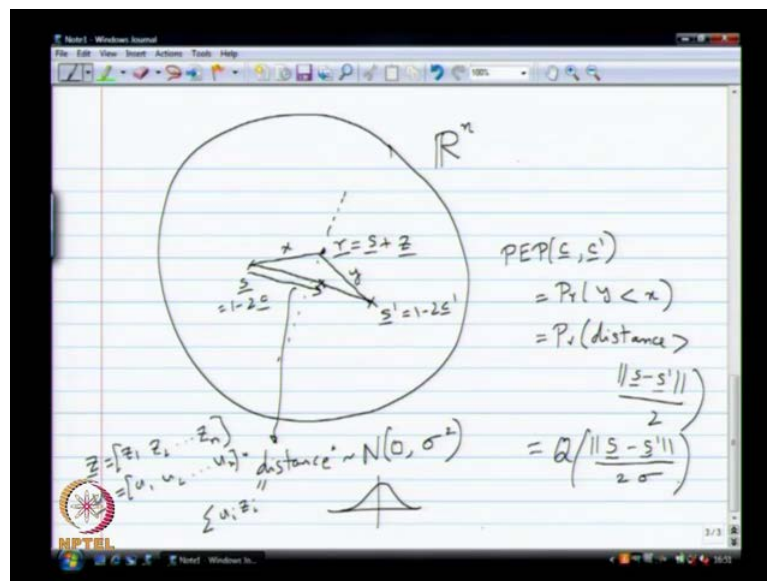 Note1 - Windows Journal
File Edit View Insert Actions Tools Help
100%
ℝⁿ
x
r = s + z
y
s
= 1-2c
s' = 1-2c'
PEP(c, c')
= Pr(y < x)
= Pr(distance >
||s-s'||
2 )
= Q( ||s - s'||
2σ )
z = [z₁ z₂ ... zₙ]
= [u₁ u₂ ... uₙ].
"distance" ~ N(0, σ²)
||
Σ uᵢ zᵢ
NPTEL
3/3
Note1 - Windows In...
16:51